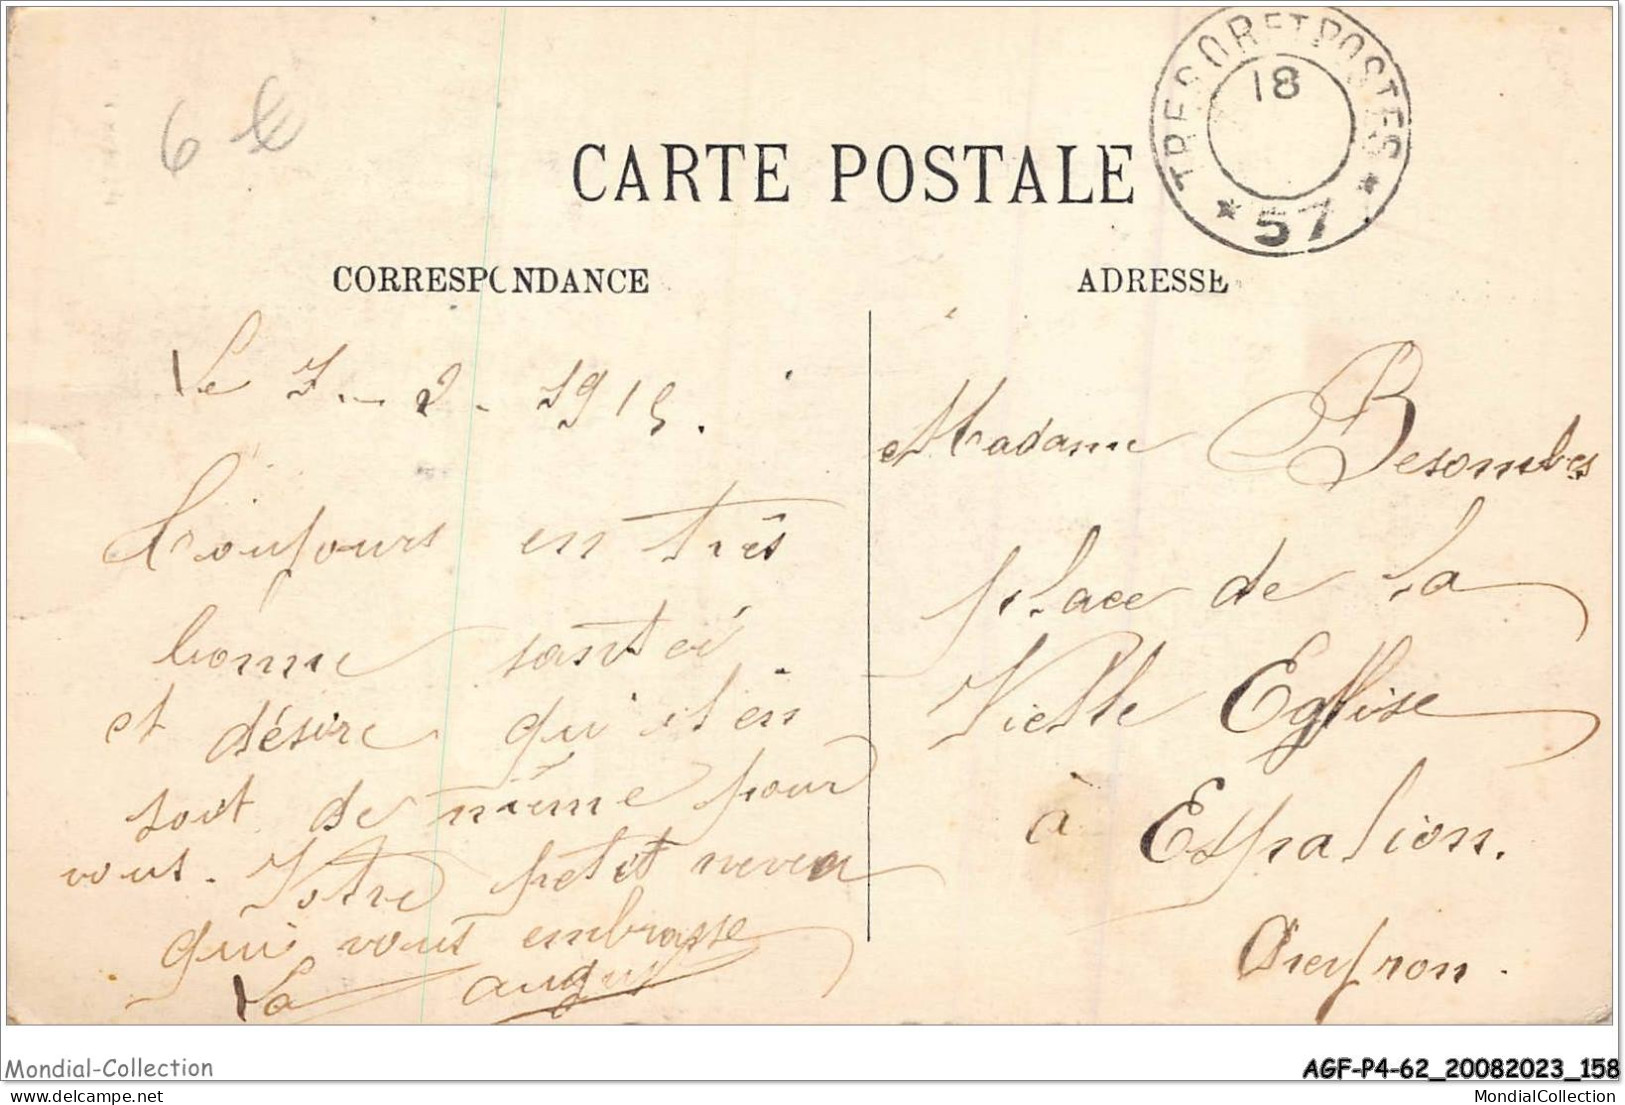 6 €
TRESOR ET POSTES
18
* 57 *
CARTE POSTALE
CORRESPONDANCE
ADRESSE
Le 7 - 2 - 1915.
Toujours en très
bonne santé
et désire qu'il en
soit de même pour
vous. Votre petit neveu
qui vous embrasse
Madame Besombes
place de la
Vielle Eglise
à Espalion.
Aveyron.
Mondial-Collection
AGF-P4-62_20082023_158
delcampe.net
MondialCollection